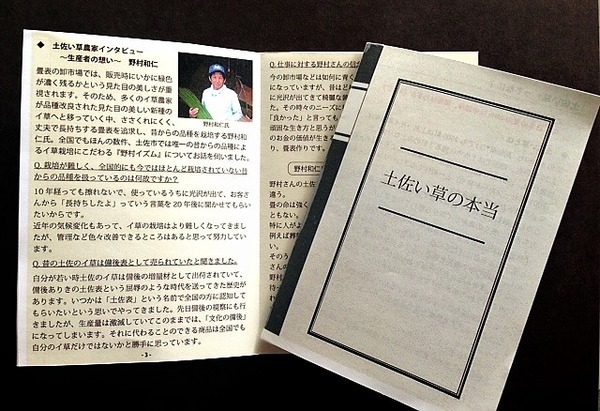 ◆ 土佐い草農家インタビュー
～生産者の想い～ 野村和仁
畳表の卸市場では、販売時にいかに緑色
が濃く残るかという見た目の美しさが重
視されます。そのため、多くのイ草農家
が品種改良された見た目の美しい新種の
イ草へと移っていく中、ささくれにくく、
丈夫で長持ちする畳表を追求し、昔からの品種を栽培する野村和
仁氏。全国でもほんの数件、土佐市では唯一の昔からの品種によ
るイ草栽培にこだわる『野村イズム』についてお話を伺いました。
野村和仁氏
Q. 栽培が難しく、全国的にも今ではほとんど栽培されていない昔
からの品種を扱っているのは何故ですか？
10年経っても擦れないで、使っているうちに光沢が出て、お客さ
んから「長持ちしたよ」っていう言葉を20年後に聞かせてもらい
たいからです。
近年の気候変化もあって、イ草の栽培はより難しくなってきました
が、管理など色々改善できるところはあると思って努力してい
ます。
Q. 昔の土佐のイ草は備後表として売られていたと聞きました。
自分が若い時土佐のイ草は備後の増量材として出荷されていて、
備後ありきの土佐表という屈辱のような時代を送ってきた歴史が
あります。いつかは「土佐表」という名前で全国の方に認知して
もらいたいという思いでやってきました。先日備後の視察にも行
きましたが、生産量は激減していてこのままでは、「文化の備後」
になってしまいます。それに代わることのできる商品は全国でも
自分のイ草だけではないかと勝手に思っています。
-3-
Q. 仕事に対する野村さんの信
今の卸市場などは如何に青く
になっていますが、昔は
に光沢が出てきて綺麗な
た。その時々のニーズに
「良かった」と言っても
頑固な生き方と思うが
のお金の価値が生きる
り、畳表作りです。
野村和仁
野村さんの土佐
違う。
畳の命は強く
ともない。
特に人がよ
例えば葬
い。
土佐い草の本当